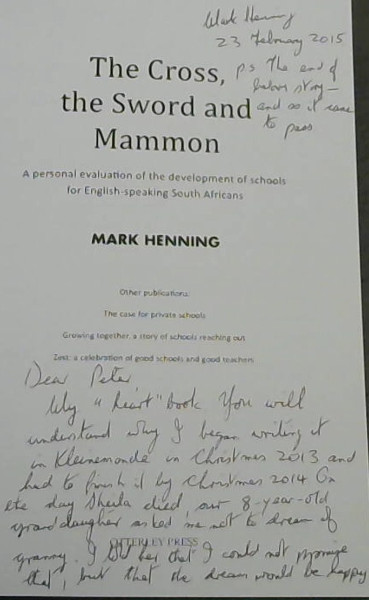 Mark Henning
23 February 2015
p.s The end of
labour story –
and so it came
to pass
The Cross,
the Sword and
Mammon
A personal evaluation of the development of schools
for English-speaking South Africans
MARK HENNING
Other publications:
The case for private schools
Growing together: a story of schools reaching out
Zest: a celebration of good schools and good teachers
Dear Peter,
My "heart" book You will
understand why I began writing it
in Kleinemonde in Christmas 2013 and
had to finish it by Christmas 2014 On
the day Sheila died, our 8-year-old
granddaughter asked me not to dream of
OTTERLEY PRESS
granny. I told her that I could not promise
that, but that the dream would be happy